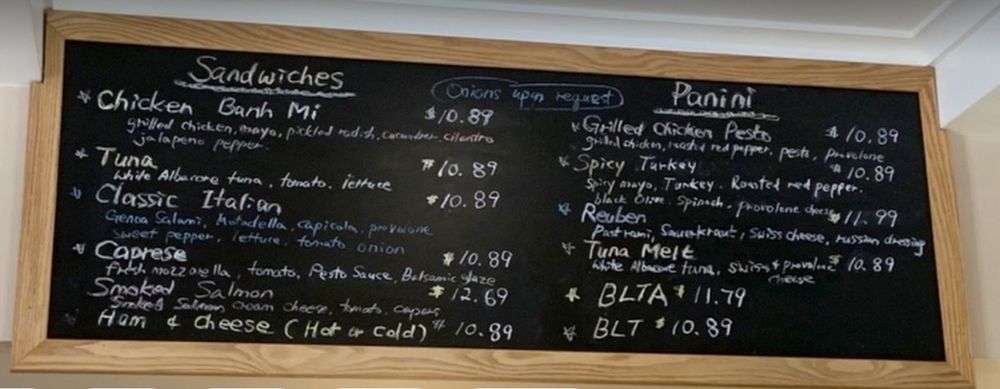 Sandwiches
Chicken Banh Mi $10.89
grilled chicken, mayo, pickled radish, cucumber, cilantro
jalapeno pepper
Tuna $10.89
White Albacore tuna, tomato, lettuce
Classic Italian $10.89
Genoa Salami, Motadella, capicola, provolone
sweet pepper, lettuce, tomato onion
Caprese $10.89
fresh mozzarella, tomato, Pesto Sauce, Balsamic glaze
Smoked Salmon $12.69
Smoked Salmon cream cheese, tomato, capers
Ham & cheese (Hot or Cold) $10.89
Onions upon request
Panini
Grilled Chicken Pesto $10.89
grilled chicken, roasted red pepper, pesto, provolone
Spicy Turkey $10.89
Spicy mayo, Turkey, Roasted red pepper,
black olive, Spinach, provolone cheese
Reuben $11.99
Pastrami, Sauerkraut, Swiss cheese, russian dressing
Tuna Melt $10.89
White Albacore tuna, swiss & provolone
cheese
BLTA $11.79
BLT $10.89